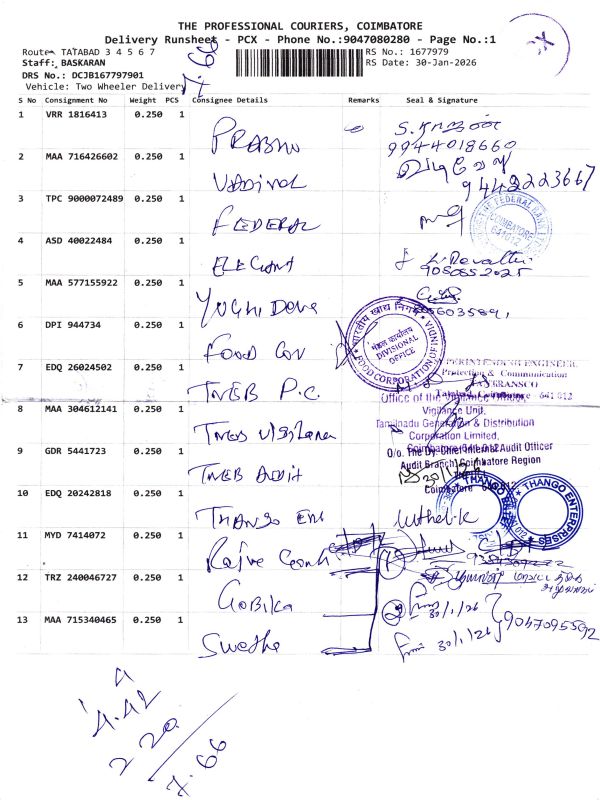 THE PROFESSIONAL COURIERS, COIMBATORE
Delivery Runsheet - PCX - Phone No.:9047080280 - Page No.:1
Route: TATABAD 3 4 5 6 7
RS No.: 1677979
Staff: BASKARAN
RS Date: 30-Jan-2026
DRS No.: DCJB167797901
Vehicle: Two Wheeler Delivery
7.66
S No Consignment No Weight PCS Consignee Details Remarks Seal & Signature
1 VRR 1816413 0.250 1 PRABHU
9944018660
2 MAA 716426602 0.250 1
9442223667
3 TPC 9000072489 0.250 1 FEDERAL
THE FEDERAL BANK LTD
COIMBATORE
641012
4 ASD 40022484 0.250 1 ELEGANT
L. Revathi
9080552025
5 MAA 577155922 0.250 1 YUGHI Deva
6 DPI 944734 0.250 1 FOOD COV
भारतीय खाद्य निगम
मंडल कार्यालय
DIVISIONAL
OFFICE
FOOD CORPORATION OF INDIA
7 EDQ 26024502 0.250 1 TNEB P.C.
SUPERINTENDING ENGINEER
Protection & Communication
TANTRANSCO
Tatabad, Coimbatore - 641 012
8 MAA 304612141 0.250 1 TNEB Vigilance
Office of the
Vigilance Unit,
Tamilnadu Generation & Distribution
Corporation Limited,
Coimbatore-641 012
9 GDR 5441723 0.250 1 TNEB Audit
O/o. The Dy. Chief Internal Audit Officer
Audit Branch, Coimbatore Region
Coimbatore - 641 012
10 EDQ 20242818 0.250 1 THANGO ENT
Muthel.K
THANGO ENTERPRISES
11 MYD 7414072 0.250 1 Rajive Gandhi
12 TRZ 240046727 0.250 1 GOBIKA
30/1/26
9047095592
13 MAA 715340465 0.250 1 Swetha
30/1/26
4.42
2 20
7.66